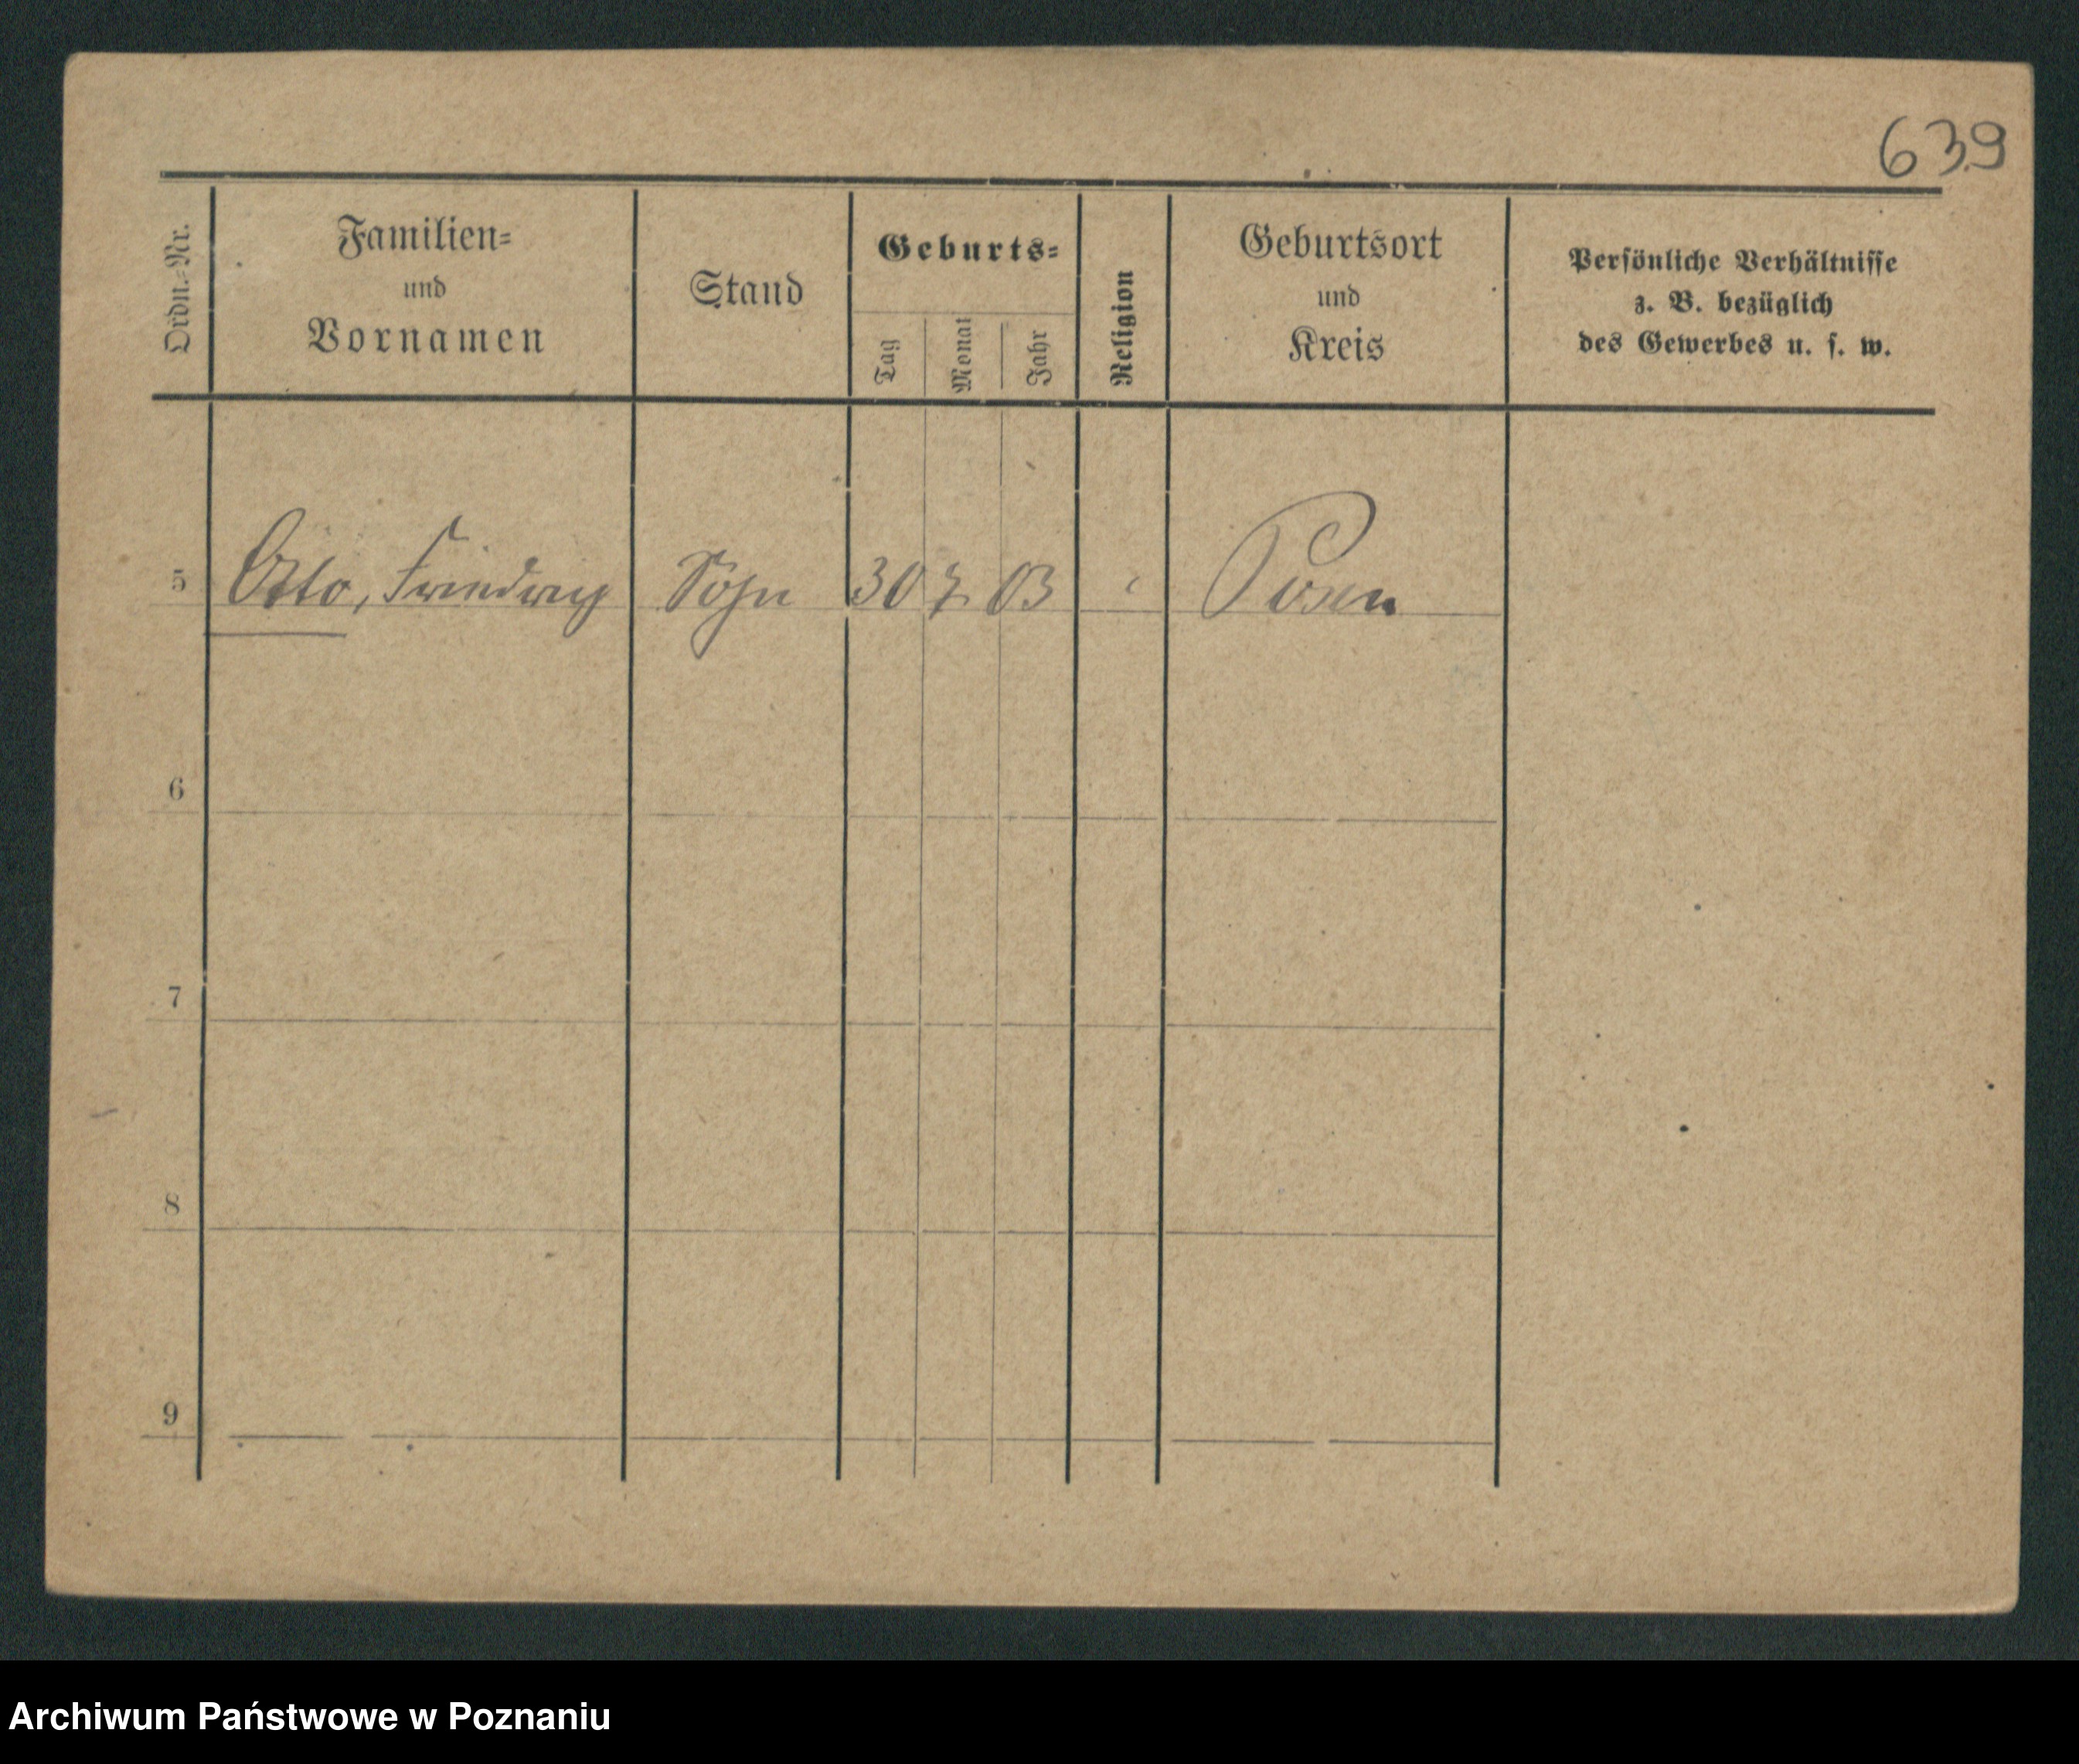 639
Ordn.-Nr.
Familien-
und
Vornamen
Stand
Geburts-
Tag
Monat
Jahr
Religion
Geburtsort
und
Kreis
Persönliche Verhältnisse
z. B. bezüglich
des Gewerbes u. s. w.
5 Otto, Friedrich Sohn 30 7. 03 Posen
6
7
8
9
Archiwum Państwowe w Poznaniu